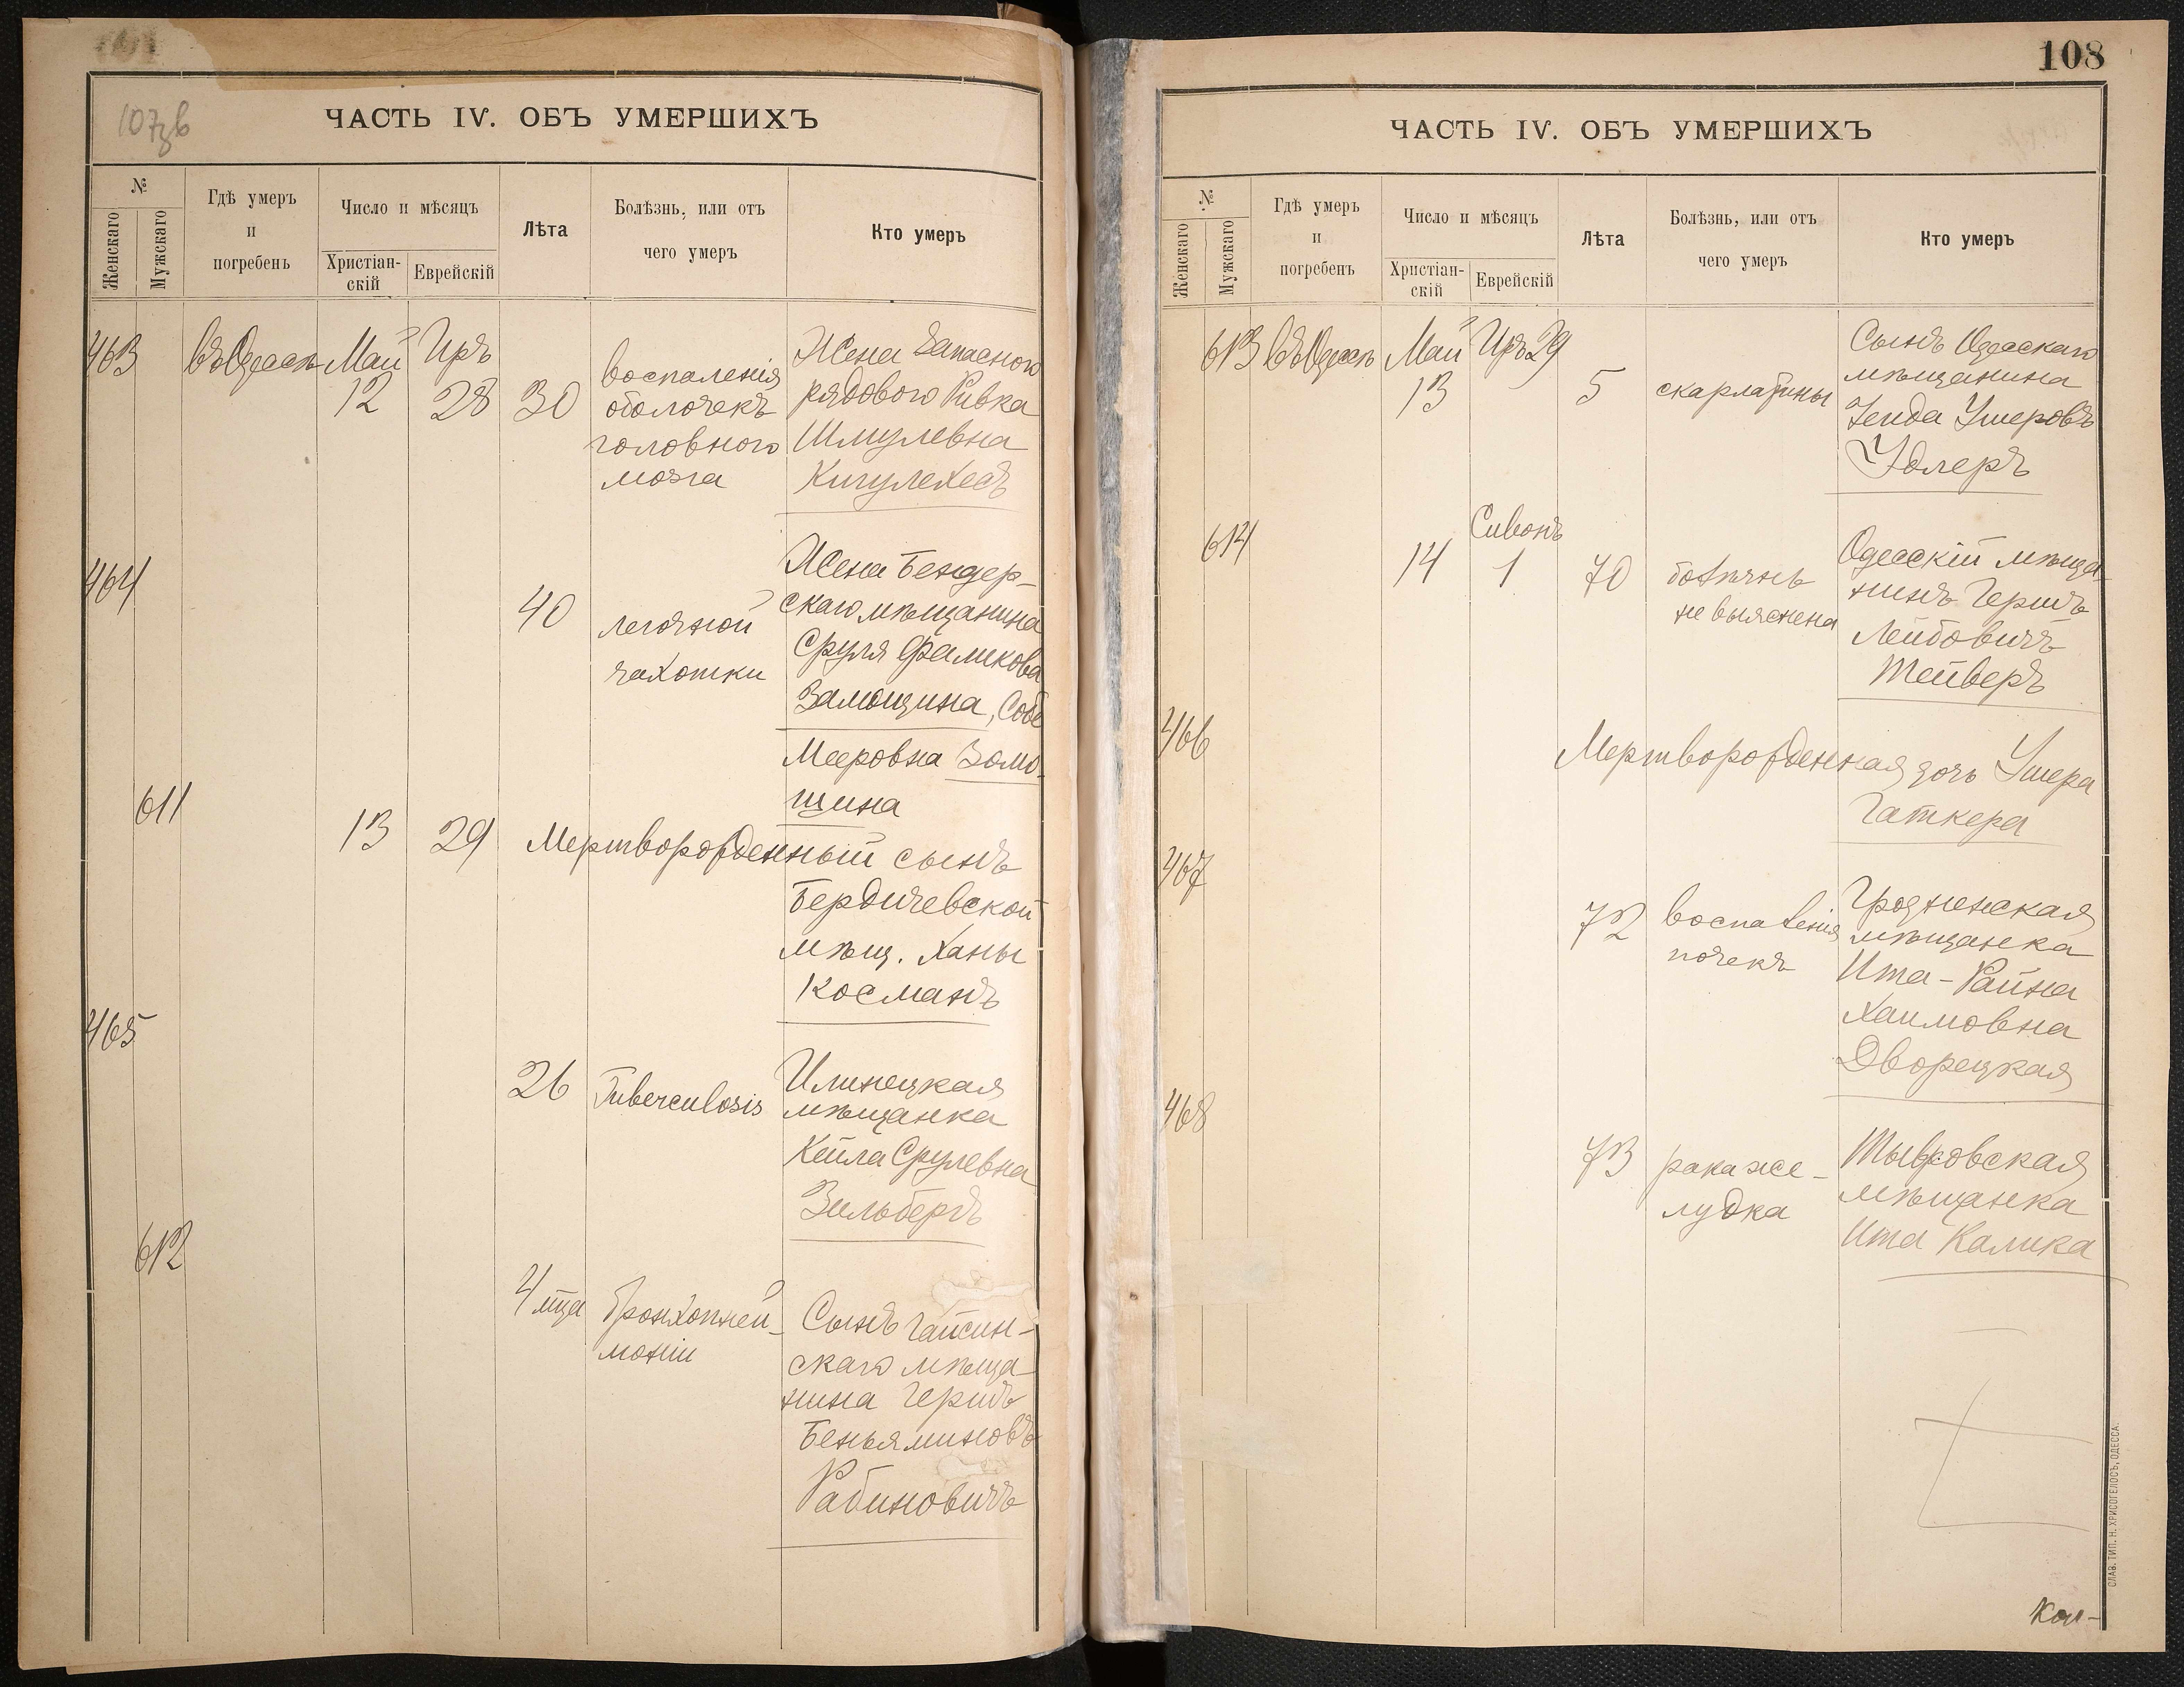 107зв
ЧАСТЬ IV. ОБЪ УМЕРШИХЪ
№
Женскаго
Мужскаго
Гдѣ умеръ
и
погребенъ
Число и мѣсяцъ
Христіан-
скій
Еврейскій
Лѣта
Болѣзнь, или отъ
чего умеръ
Кто умеръ
463 въ Одессѣ Май Иръ
12 28 30
воспаленія
оболочекъ
головного
мозга
Жена Запасного
рядового Ривка
Шмулевна
464
40
легочной
чахотки
Жена Бендер-
скаго мѣщанина
Сруля Фаликова
Замощина, Собе
Мееровна Замо-
щина
611
13 29 Мертворожденный сынъ
Бердичевской
мѣщ. Ханы
Косманъ
465
26 Tuberculosis
Илинецкая
мѣщанка
Кейла Срулевна
Зильберъ
612
4 мца бронхопней-
моніи
Сынъ Гайсин-
скаго мѣща
нина Гершъ
Беньяминовъ
Рабиновичъ
108
ЧАСТЬ IV. ОБЪ УМЕРШИХЪ
№
Женскаго
Мужскаго
Гдѣ умеръ
и
погребенъ
Число и мѣсяцъ
Христіан-
скій
Еврейскій
Лѣта
Болѣзнь, или отъ
чего умеръ
Кто умеръ
613 въ Одессѣ Май Иръ 29
13 5 скарлатины
Сынъ Одесскаго
мѣщанина
Зейда Ушеровъ
Удлеръ
614
Сивонъ
14 1 70 болѣзнь
не выяснена
Одесскій мѣща-
нинъ Гершъ
Лейбовичъ
Тейверъ
466
Мертворожденная дочь Ушера
Гаткера
467
72 воспаленія
почекъ
Гродненская
мѣщанка
Ита-Райна
Хаимовна
Дворецкая
468
73 рака же-
лудка
Тывровская
мѣщанка
Ита Калика
СЛАВ. ТИП. Н. ХРИСОГЕЛОСЪ, ОДЕССА.